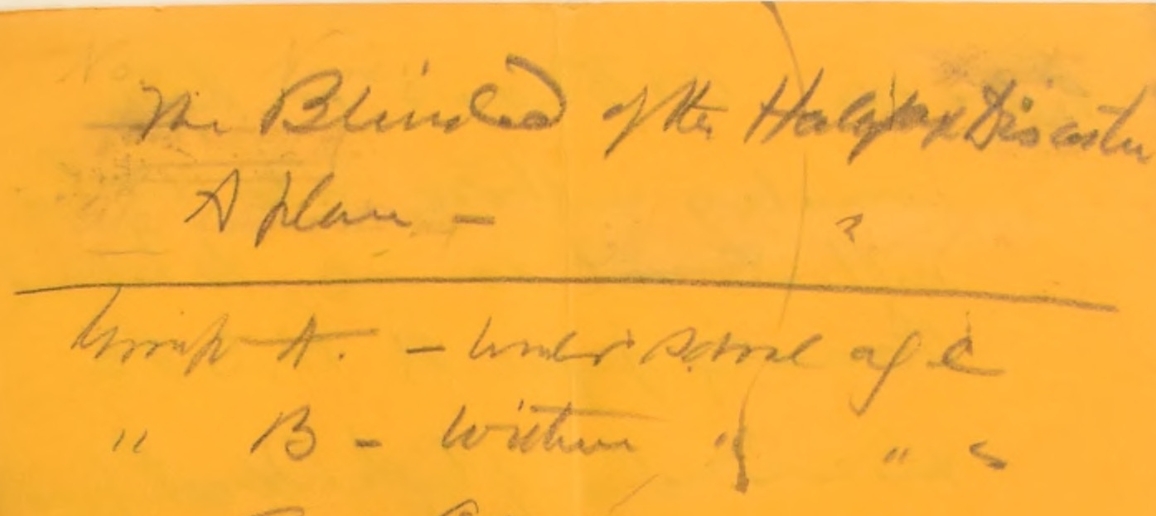 The Blinded of the Halifax Disaster
A plan —
Group A. – Under school age
" B – Within " "